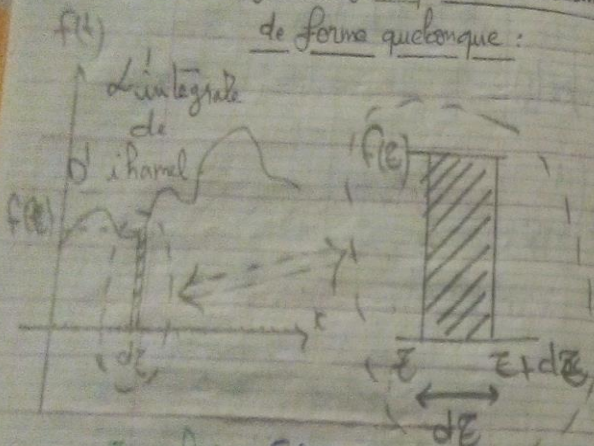 de forme quelconque :
f(t)
L'intégrale
de
D'ihamel
f(Z)
f(Z)
t
dZ
Z
Z+dZ
dZ